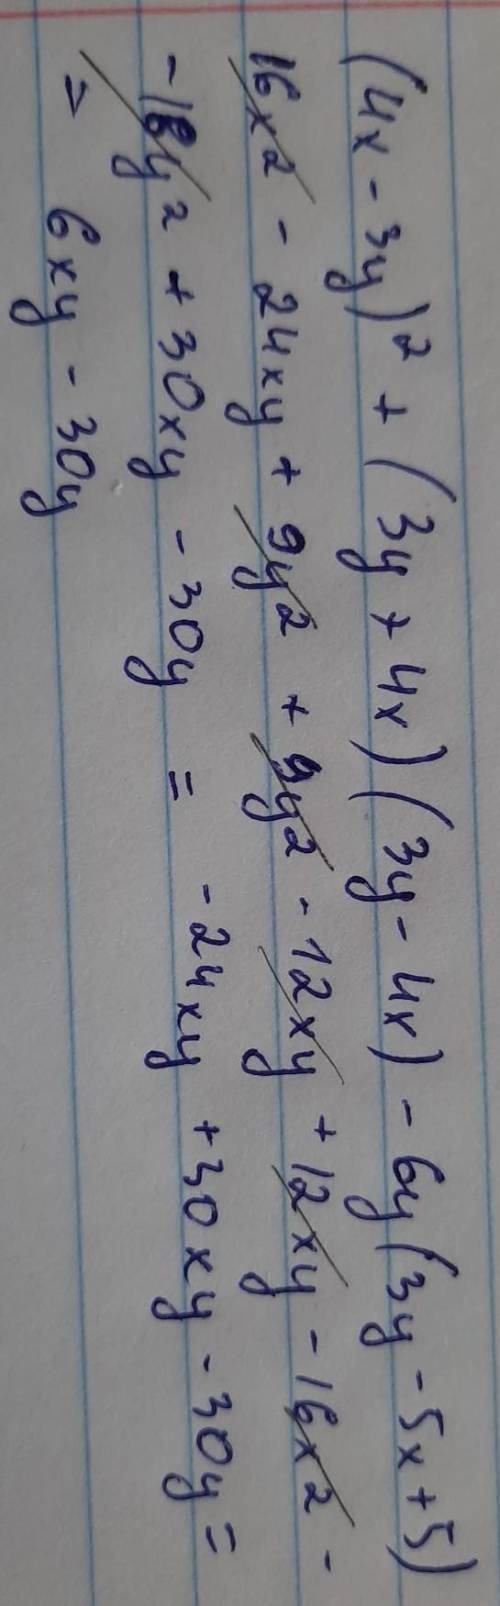 (4x - 3y)² + (3y + 4x)(3y - 4x) - 6y(3y - 5x + 5)
16x² - 24xy + 9y² + 9y² - 12xy + 12xy - 16x² -
- 18y² + 30xy - 30y = - 24xy + 30xy - 30y =
= 6xy - 30y